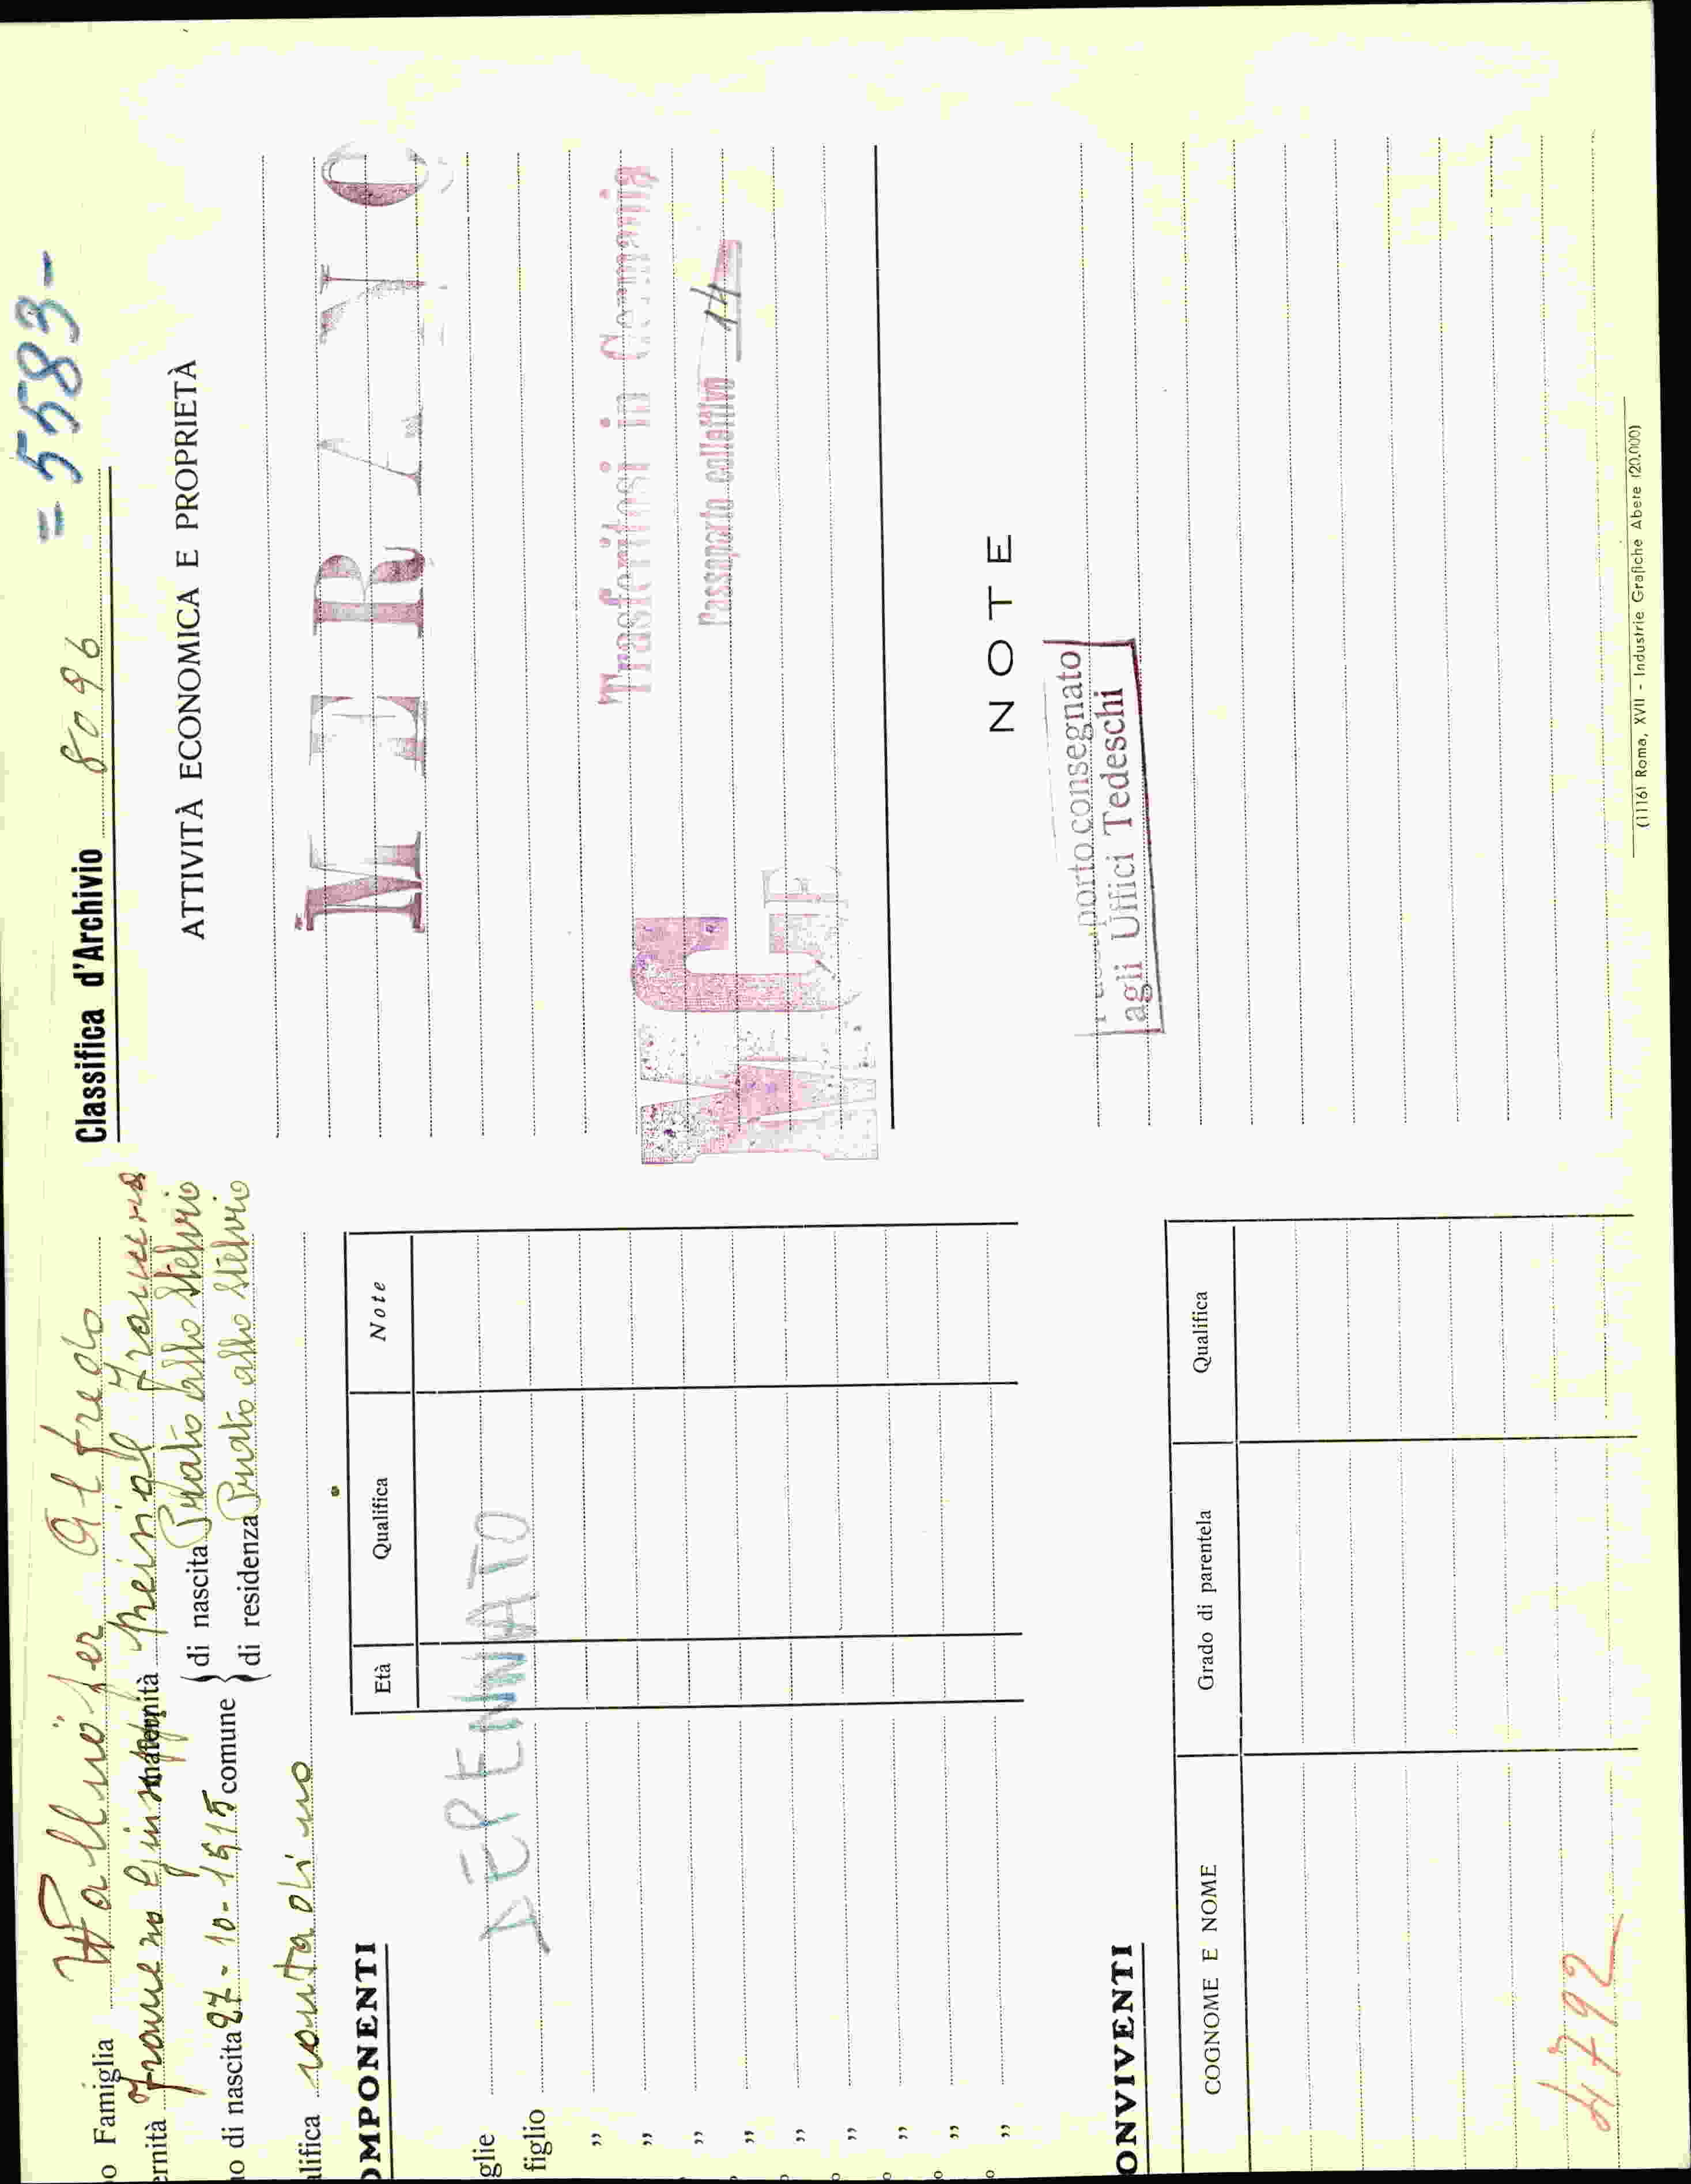 = 5583-
Classifica d'Archivio 8096
o Famiglia Wallnöfer Alfredo
ernità maternità
no di nascita 27-10-1915 comune { di nascita Prato allo Stelvio
{ di residenza Prato allo Stelvio
alifica contadino
OMPONENTI
Età Qualifica Note
glie
figlio
DEPENNATO
"
"
"
"
"
"
"
"
"
ONVIVENTI
COGNOME E NOME Grado di parentela Qualifica
4792
ATTIVITÀ ECONOMICA E PROPRIETÀ
MERANO
Trasferitosi in Germania
Passaporto collettivo 14
NOTE
Passaporto consegnato
agli Uffici Tedeschi
(1116) Roma, XVII - Industrie Grafiche Abete (20.000)